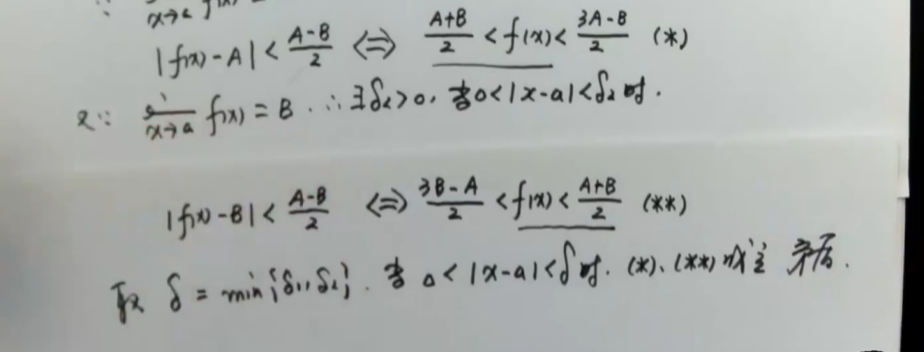 ∵ lim x→a f(x)
|f(x)-A| < (A-B)/2 ⇔ (A+B)/2 < f(x) < (3A-B)/2 (*)
又∵ lim x→a f(x) = B . ∴ ∃δ₂>0, 当0<|x-a|<δ₂时.
|f(x)-B| < (A-B)/2 ⇔ (3B-A)/2 < f(x) < (A+B)/2 (**)
取 δ = min{δ₁,δ₂}. 当 0<|x-a|<δ时. (*)、(**)成立 矛盾.